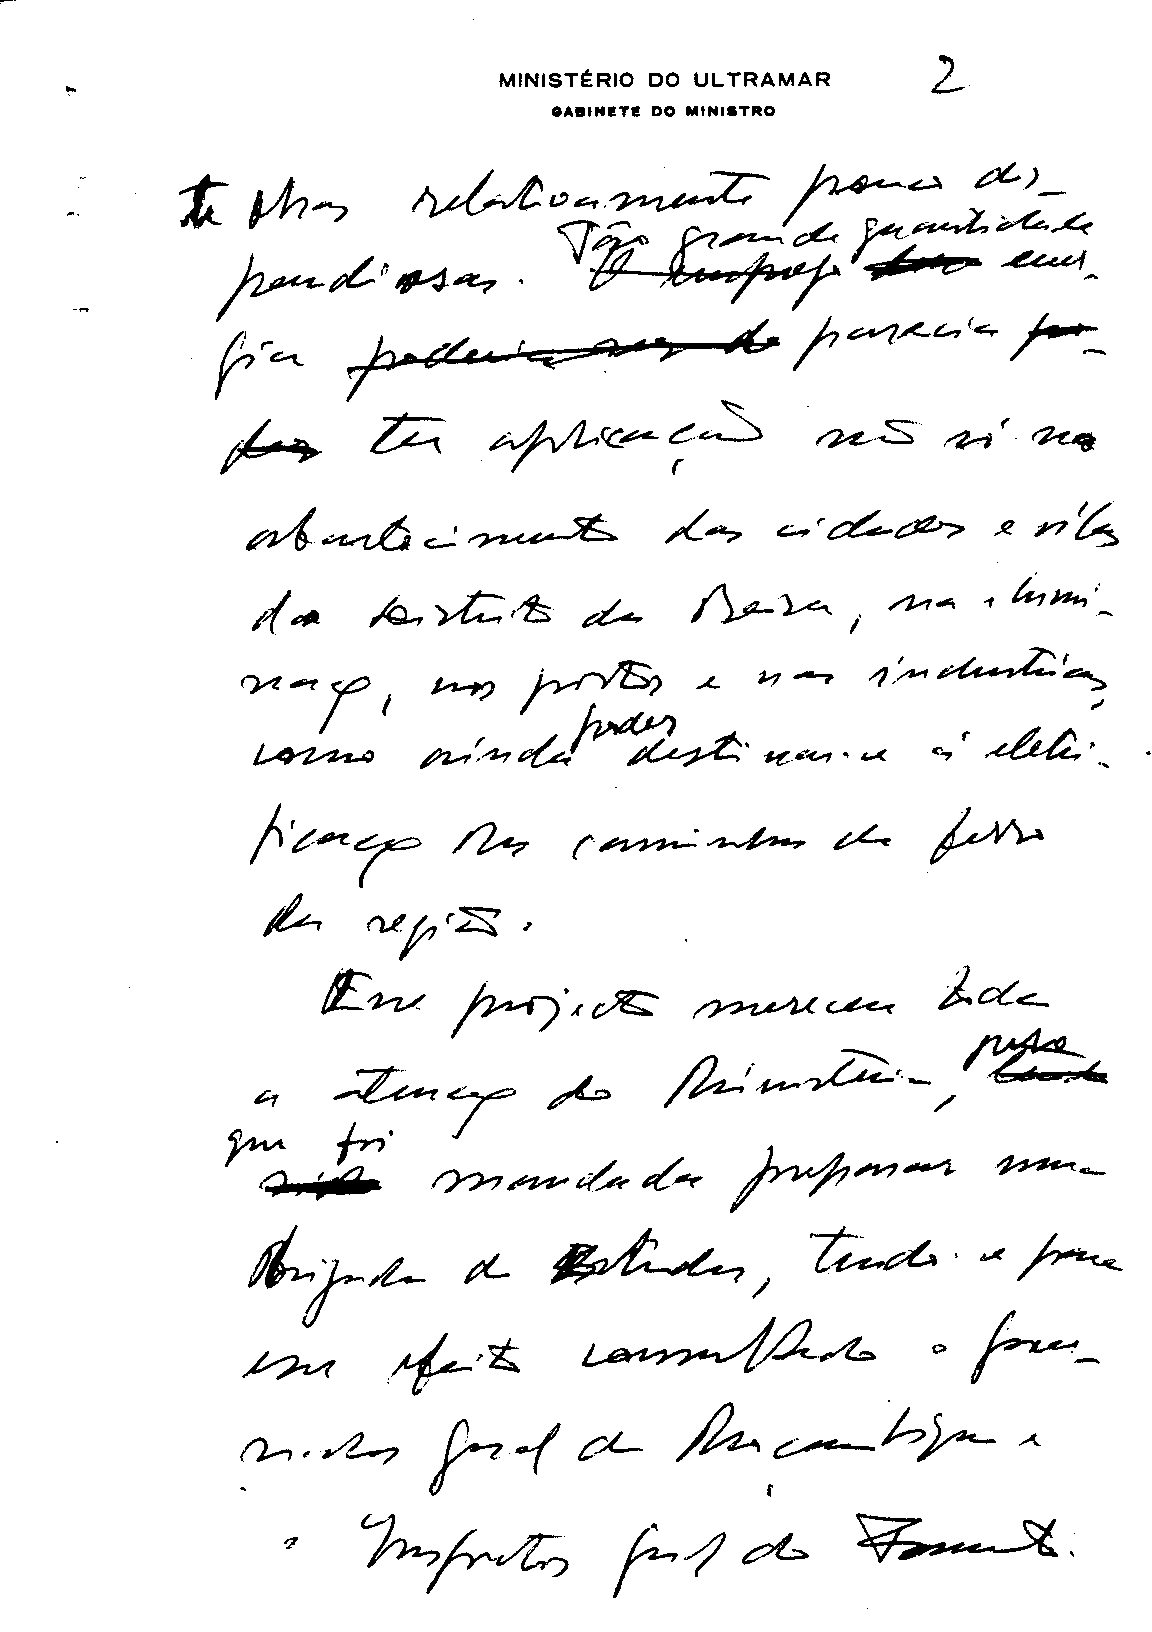 MINISTÉRIO DO ULTRAMAR 2
GABINETE DO MINISTRO
te obras relativamente pouco dis-
Tão grande quantidade
pendiosas. O emprego ener-
gia poderia ser de parecia po-
der ter aplicação não só no
abastecimento das cidades e vilas
do distrito da Beira, na ilumi-
nação, nos portos e nas industrias,
poder
como ainda destinar-se à eletri-
ficação dos caminhos de ferro
da região.
Esse projecto mereceu toda
para
a atenção do Ministério,
que foi
mandada preparar uma
Brigada de Estudos, tendo-se para
esse efeito consultado o gover-
nador geral de Moçambique e
o Inspector geral do Fomento.